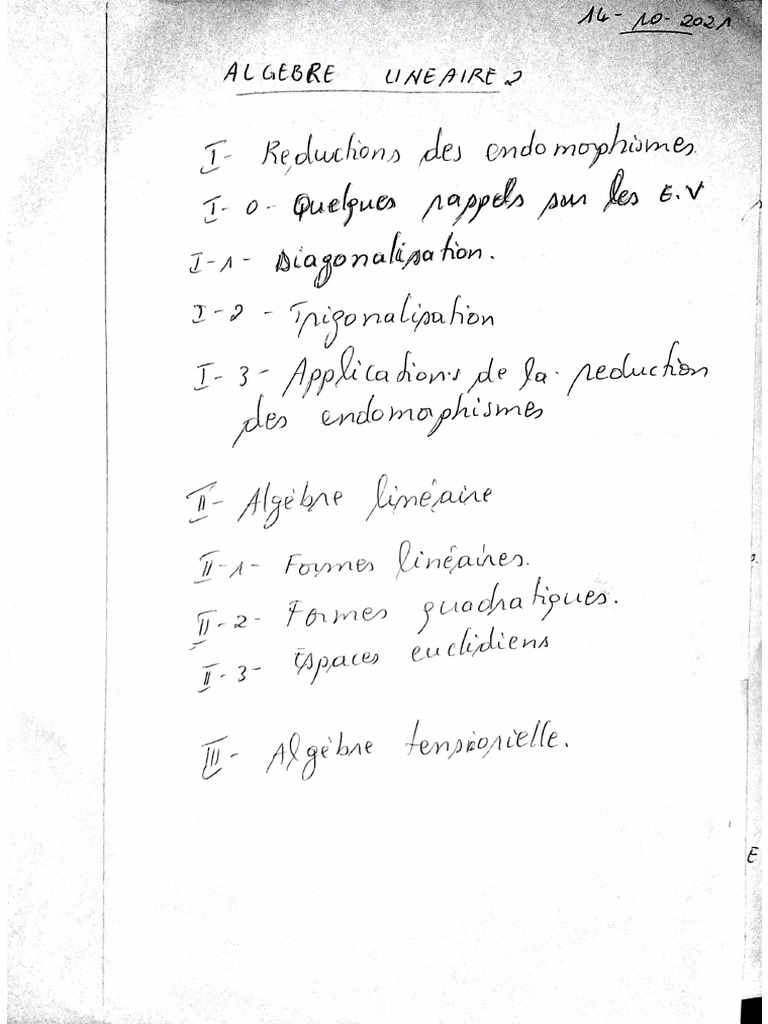 14-10-2021
ALGEBRE LINEAIRE 2
I- Reductions des endomorphismes
I-0- Quelques rappels sur les E.V
I-1- Diagonalisation.
I-2- Trigonalisation
I-3- Applications de la reduction
des endomorphismes
II- Algèbre linéaire
II-1- Formes linéaires.
II-2- Formes quadratiques.
II-3- Espaces euclidiens
III- Algèbre tensorielle.
E